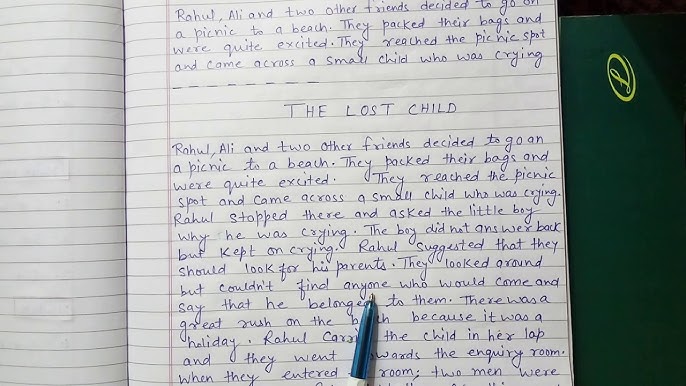 Rahul, Ali and two other friends decided to go on
a picnic to a beach. They packed their bags and
were quite excited. They reached the picnic spot
and came across a small child who was crying
THE LOST CHILD
Rahul, Ali and two other friends decided to go on
a picnic to a beach. They packed their bags and
were quite excited. They reached the picnic
spot and came across a small child who was crying.
Rahul stopped there and asked the little boy
why he was crying. The boy did not answer back
but kept on crying. Rahul suggested that they
should look for his parents. They looked around
but couldn't find anyone who would come and
say that he belonged to them. There was a
great rush on the because it was a
holiday. Rahul the child in her lap
and they went the enquiry room.
when they entered room; two men were